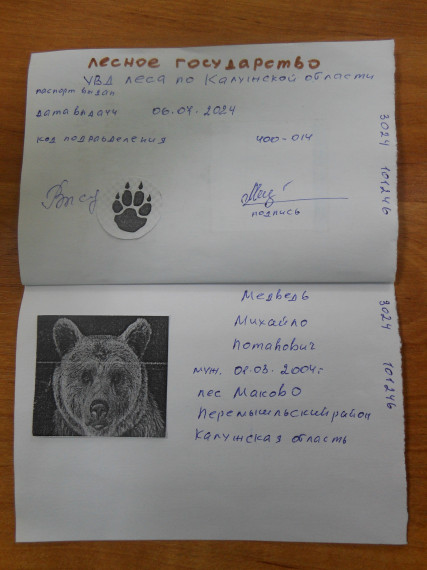 лесное государство
УВД леса по Калужской области
паспорт выдан
дата выдачи 06.07.2024
код подразделения 400-014
подпись
3024 101246
Медведь
Михайло
Потапович
муж. 08.03.2004г.
лес Маково
Перемышльский район
Калужская область
3024 101246